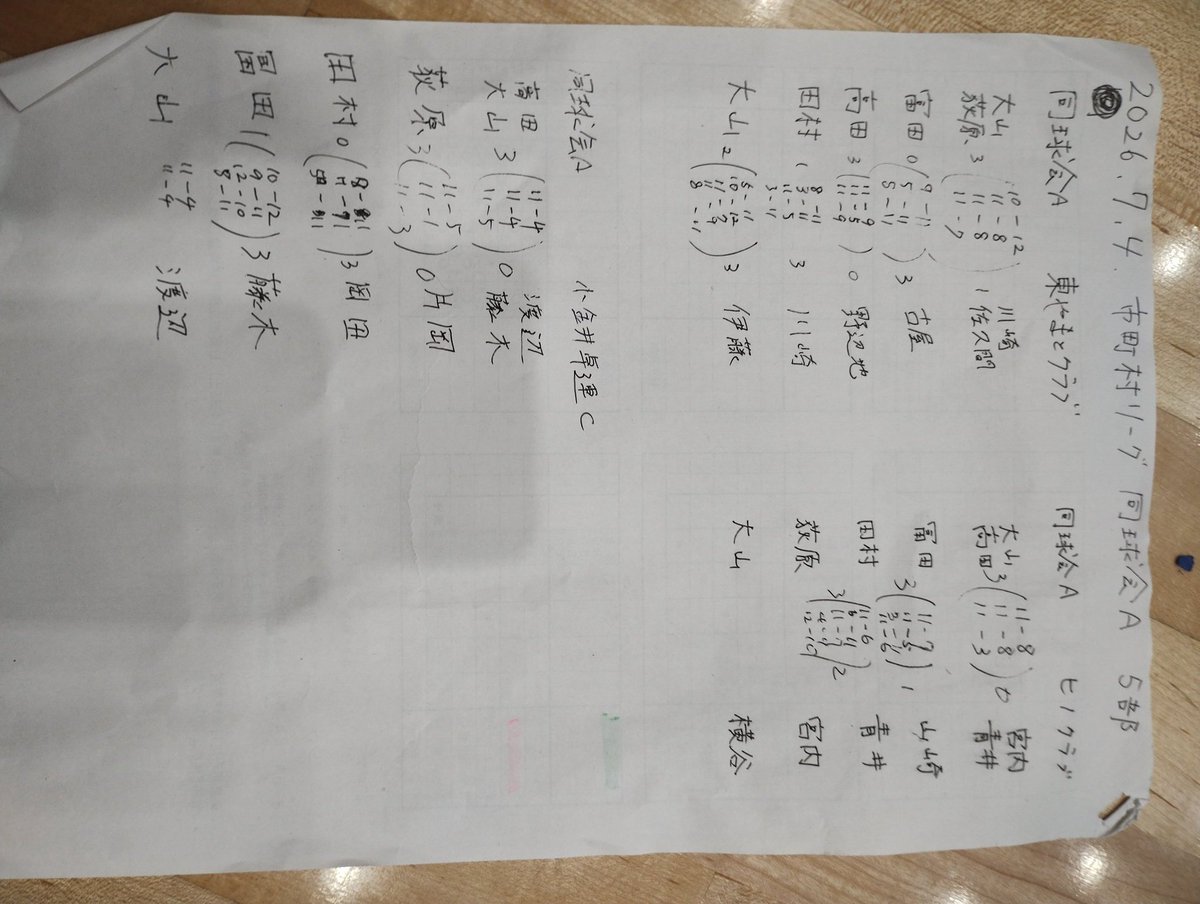 2026.7.4. 市町村リーグ 同球会A 5部
同球会A 東やまとクラブ
大山
荻原 3 (10-12 11-8 11-8 11-7) 1 川崎
佐久間
富田 0 (9-11 5-11 5-11) 3 古屋
高田 3 (11-9 11-5 11-9) 0 野辺地
田村 1 8-11 3-11 11-5 3-11 3 川崎
大山 2 (5-11 10-12 11-9 8-11) 3 伊藤
同球会A ヒノクラブ
大山
高田 3 (11-8 11-8 11-3) 0 宮内
青井
富田 3 (11-7 11-5 11-6) 1 山崎
田村 3 (11-6 11-7 12-10) 2 青井
荻原 宮内
大山 横谷
同球会A 小金井卓連C
高田
大山 3 (11-4 11-4 11-5) 0 渡辺
藤木
荻原 3 (11-5 11-1 11-3) 0 片岡
田村 0 3 岡田
富田 1 (10-12 9-11 12-10 8-11) 3 藤木
大山 11-4 11-4 渡辺